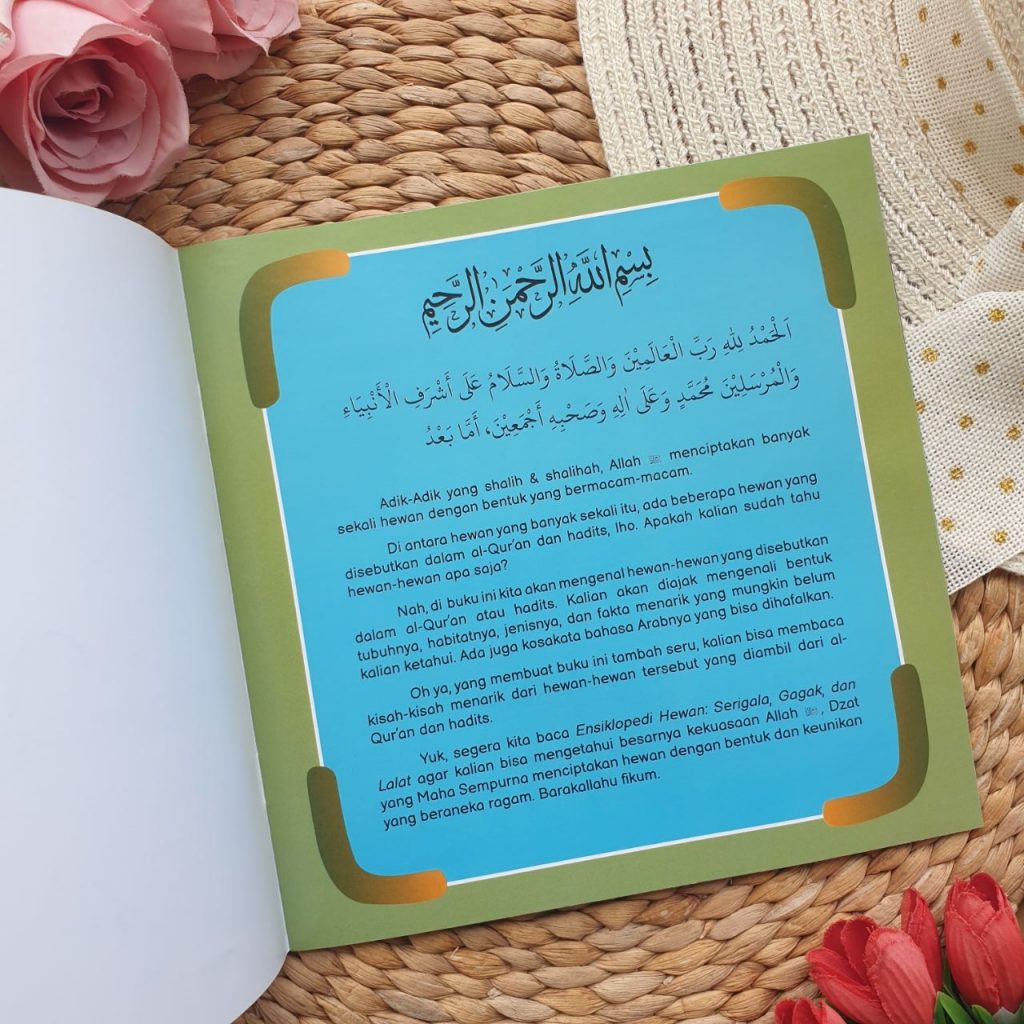 بِسْمِ اللَّهِ الرَّحْمَنِ الرَّحِيمِ
اَلْحَمْدُ لِلّٰهِ رَبِّ الْعَالَمِيْنَ وَالصَّلَاةُ وَالسَّلَامُ عَلَى أَشْرَفِ الْأَنْبِيَاءِ
وَالْمُرْسَلِيْنَ مُحَمَّدٍ وَعَلَى اٰلِهِ وَصَحْبِهِ أَجْمَعِيْنَ، أَمَّا بَعْدُ
Adik-Adik yang shalih & shalihah, Allah menciptakan banyak
sekali hewan dengan bentuk yang bermacam-macam.
Di antara hewan yang banyak sekali itu, ada beberapa hewan yang
disebutkan dalam al-Qur'an dan hadits, lho. Apakah kalian sudah tahu
hewan-hewan apa saja?
Nah, di buku ini kita akan mengenal hewan-hewan yang disebutkan
dalam al-Qur'an atau hadits. Kalian akan diajak mengenali bentuk
tubuhnya, habitatnya, jenisnya, dan fakta menarik yang mungkin belum
kalian ketahui. Ada juga kosakata bahasa Arabnya yang bisa dihafalkan.
Oh ya, yang membuat buku ini tambah seru, kalian bisa membaca
kisah-kisah menarik dari hewan-hewan tersebut yang diambil dari al-
Qur'an dan hadits.
Yuk, segera kita baca Ensiklopedi Hewan: Serigala, Gagak, dan
Lalat agar kalian bisa mengetahui besarnya kekuasaan Allah , Dzat
yang Maha Sempurna menciptakan hewan dengan bentuk dan keunikan
yang beraneka ragam. Barakallahu fikum.